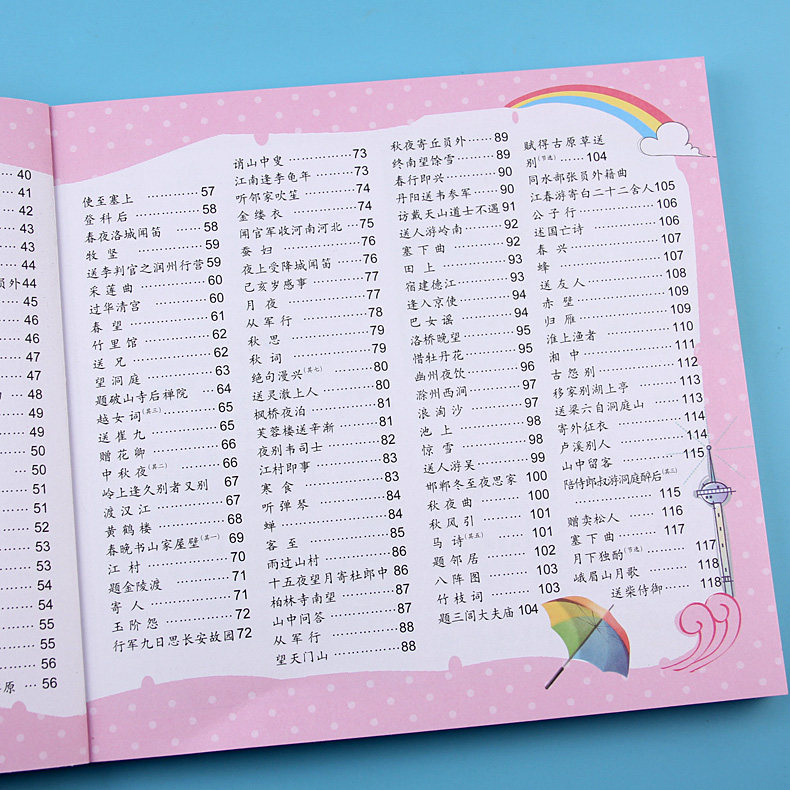 40
41
42
42
43
43
员外 44
44
45
46
46
47
47
48
49
50
50
51
51
52
53
53
54
54
55
55
56
原 … 56
使至塞上 …… 57
登科后 …… 58
春夜洛城闻笛 …… 58
牧竖 …… 59
送李判官之润州行营 59
采莲曲 …… 60
过华清宫 …… 60
春望 …… 61
竹里馆 …… 62
送兄 …… 62
望洞庭 …… 63
题破山寺后禅院 …… 64
越女词(其三) …… 65
送崔九 …… 65
赠花卿 …… 66
中秋夜(其二) …… 66
岭上逢久别者又别 67
渡汉江 …… 67
黄鹤楼 …… 68
春晚书山家屋壁(其一) 69
江村 …… 70
题金陵渡 …… 71
寄人 …… 71
玉阶怨 …… 72
行军九日思长安故园 72
诮山中叟 …… 73
江南逢李龟年 …… 73
听邻家吹笙 …… 74
金缕衣 …… 74
闻官军收河南河北 …… 75
蚕妇 …… 76
夜上受降城闻笛 …… 76
己亥岁感事 …… 77
月夜 …… 77
从军行 …… 78
秋思 …… 79
秋词 …… 79
绝句漫兴(其七) …… 80
送灵澈上人 …… 80
枫桥夜泊 …… 81
芙蓉楼送辛渐 …… 81
夜别韦司士 …… 82
江村即事 …… 83
寒食 …… 83
听弹琴 …… 84
蝉 …… 84
客至 …… 85
雨过山村 …… 86
十五夜望月寄杜郎中 86
柏林寺南望 …… 87
山中问答 …… 87
从军行 …… 88
望天门山 …… 88
秋夜寄丘员外 …… 89
终南望馀雪 …… 89
春行即兴 …… 90
丹阳送韦参军 …… 90
访戴天山道士不遇 91
送人游岭南 …… 92
塞下曲 …… 92
田上 …… 93
宿建德江 …… 93
逢入京使 …… 94
巴女谣 …… 94
洛桥晚望 …… 95
惜牡丹花 …… 95
幽州夜饮 …… 96
滁州西涧 …… 97
浪淘沙 …… 97
池上 …… 98
惊雪 …… 98
送人游吴 …… 99
邯郸冬至夜思家 100
秋夜曲 …… 100
秋风引 …… 101
马诗(其五) …… 101
题邻居 …… 102
八阵图 …… 103
竹枝词 …… 103
题三闾大夫庙 104
赋得古原草送
别(节选) …… 104
同水部张员外籍曲
江春游寄白二十二舍人 105
公子行 …… 106
述国亡诗 …… 106
春兴 …… 107
蜂 …… 107
送友人 …… 108
赤壁 …… 108
归雁 …… 109
淮上渔者 …… 110
湘中 …… 111
古怨别 …… 112
移家别湖上亭 …… 113
送梁六自洞庭山 …… 113
寄外征衣 …… 114
卢溪别人 …… 114
山中留客 …… 115
陪侍郎叔游洞庭醉后(其三)
…… 115
赠卖松人 …… 116
塞下曲 …… 117
月下独酌(节选) …… 117
峨眉山月歌 …… 118
送柴侍御 …… 118